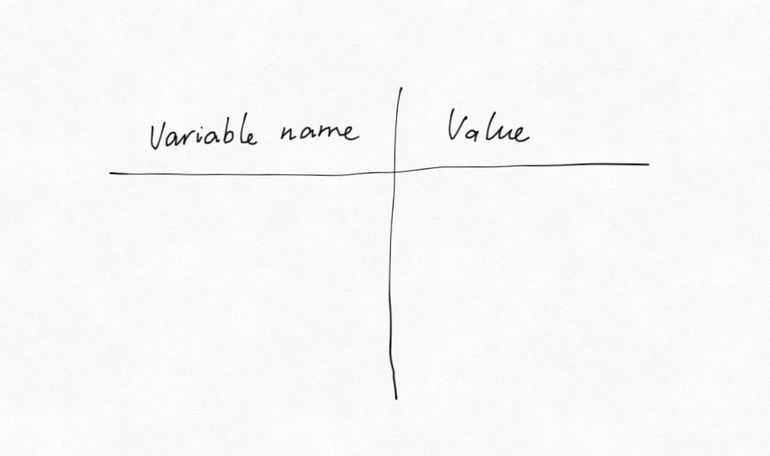 Variable name Value